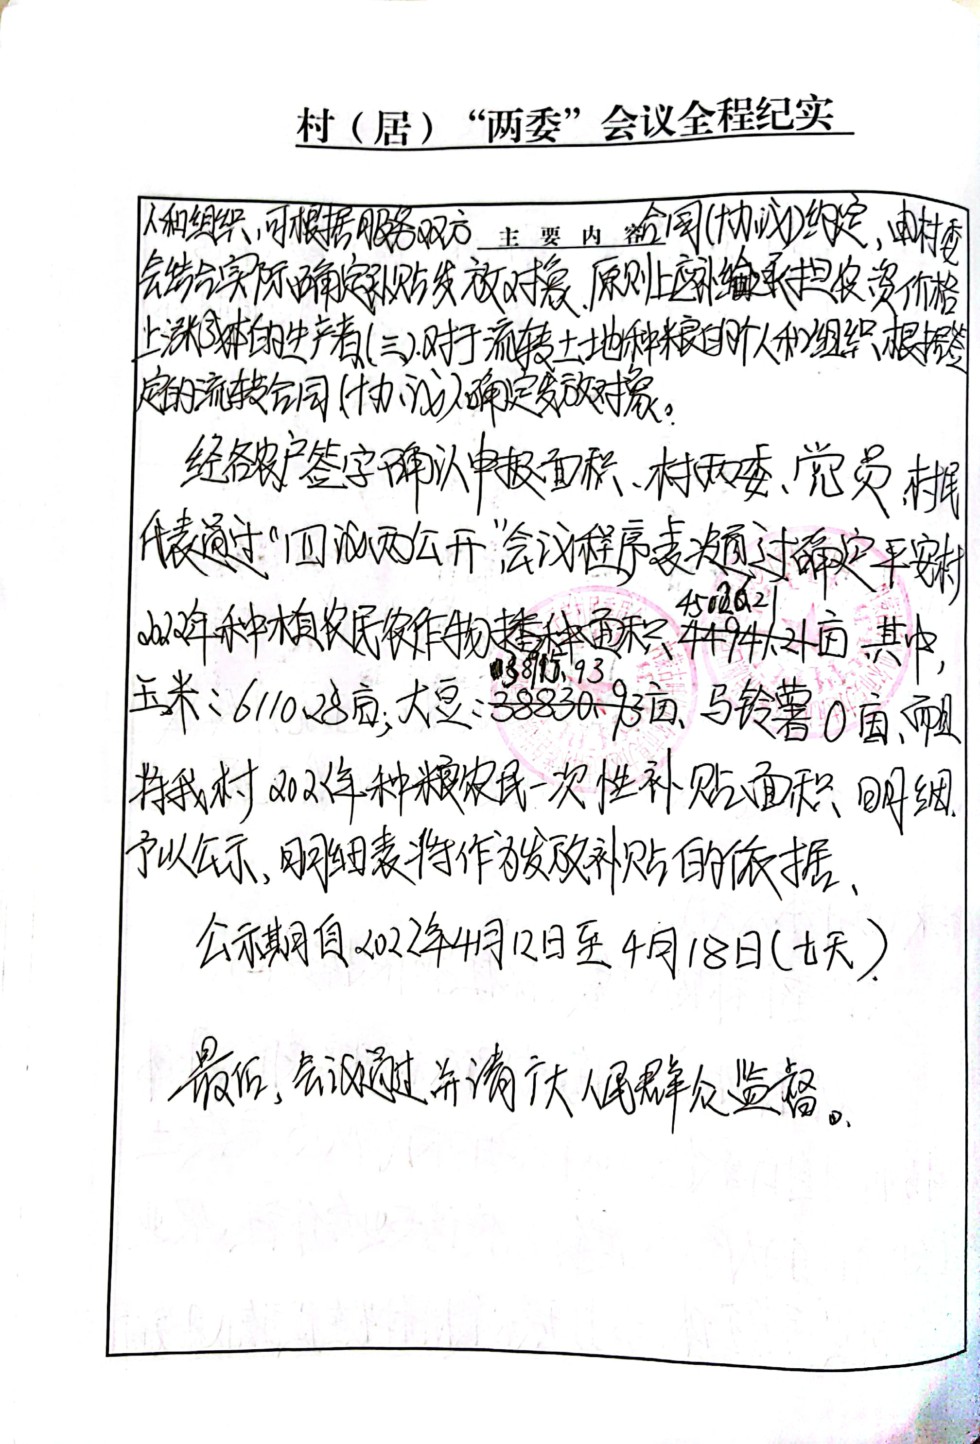 村（居）“两委”会议全程纪实
主要内容
人和组织，可根据服务双方合同(协议)约定，由村委
会结合实际确定补贴发放对象，原则上应补给承担农资价格
上涨成本的生产者，(三).对于流转土地种粮的个人和组织，根据签
定的流转合同(协议)确定发放对象。
经各农户签字确认申报面积、村两委、党员、村民
代表通过“四议两公开”会议程序表决通过确定平安村
45026.21
2022年种植农民农作物播种面积44941.21亩，其中，
38915.93
玉米：6110.28亩；大豆：38830.93亩、马铃薯0亩，而且
将我村2022年种粮农民一次性补贴面积、明细
予以公示，明细表将作为发放补贴的依据、
公示期自2022年4月12日至4月18日(七天)
最后，会议通过并请广大人民群众监督。